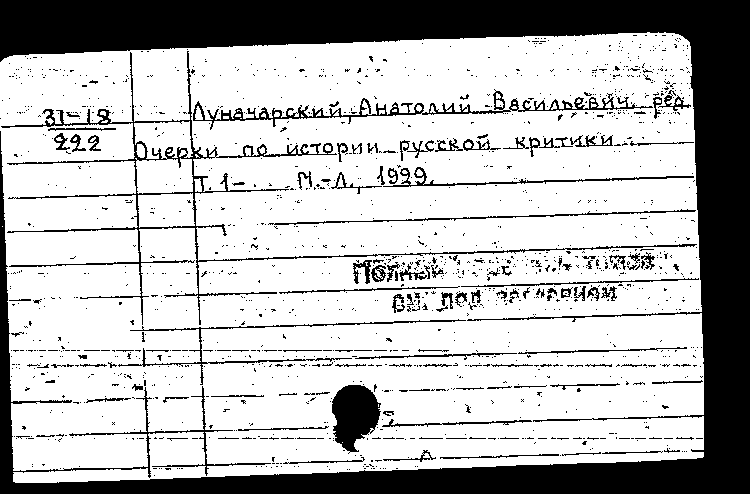 31-18
222
Луначарский, Анатолий Васильевич, ред.
Очерки по истории русской критики.
Т. 1- ... М.-Л., 1929.
Полный томов
см. под заглавием